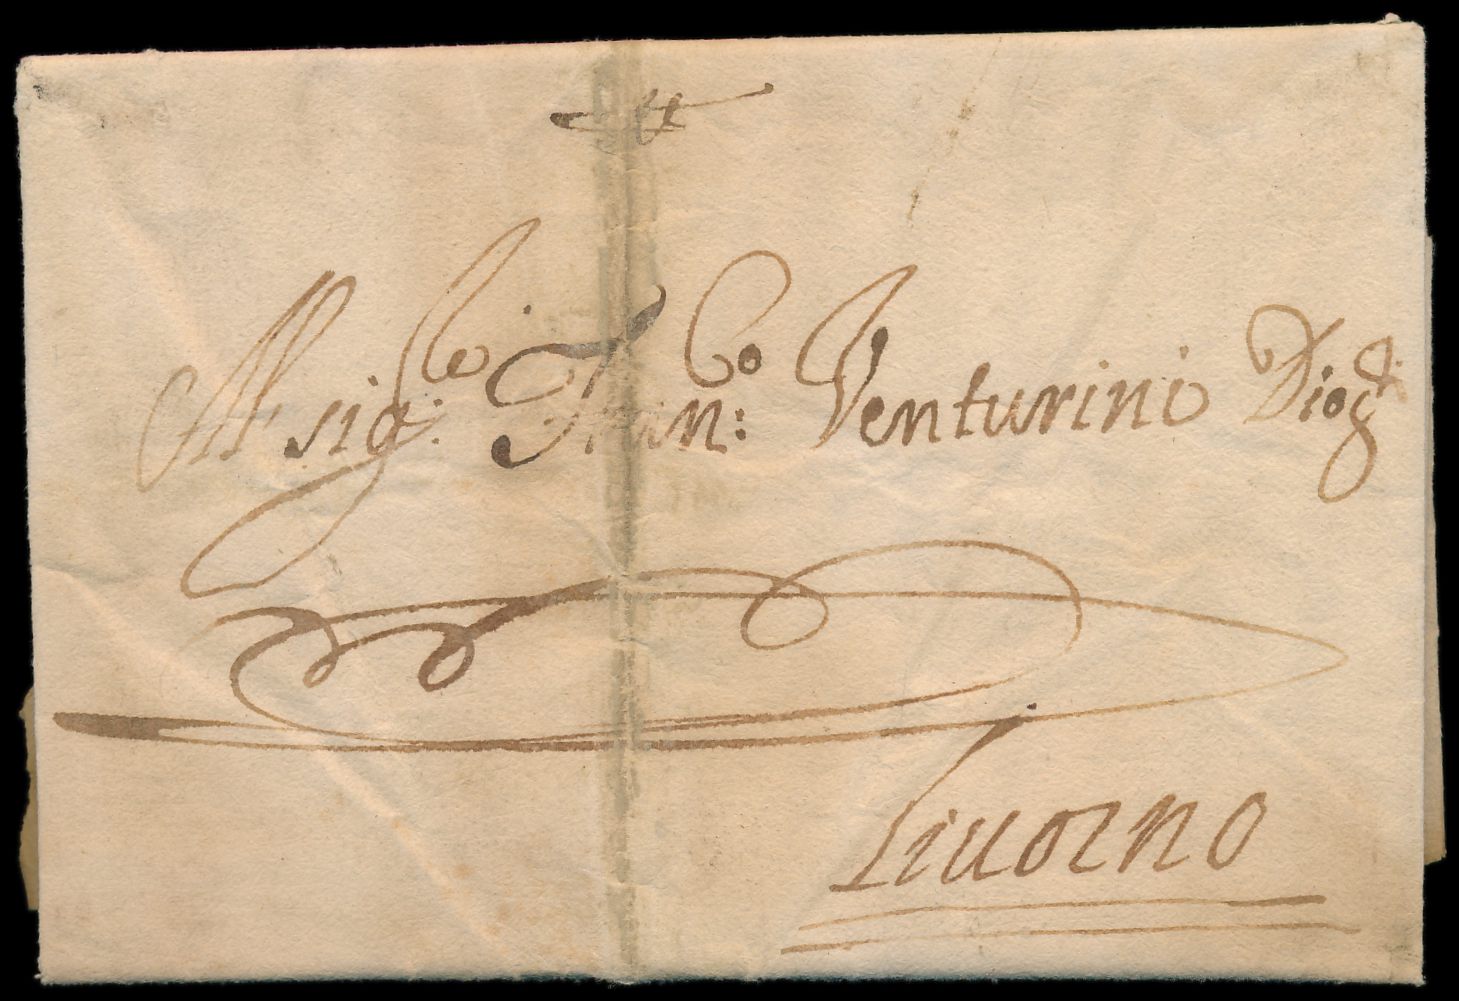 Al sig:re Fran:co Venturini Diog.di
Liuorno